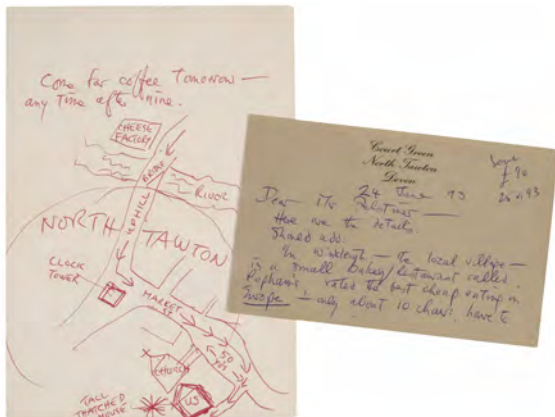 Come for coffee Tomorrow —
any time after nine.
CHEESE
FACTORY
BRIDGE
RIVER
UPHILL
NORTH TAWTON
CLOCK
TOWER
MARKET
ST
50
YDS
CHURCH
TALL
THATCHED
HOUSE
US
Court Green
North Tawton
Devon
24 June 93
Dear Mr
Here are the details.
Should add:
In Winkleigh — the local village —
is a small bakery/restaurant called
Pophams, rated the best cheap eating in
Europe — only about 10 chairs. have to